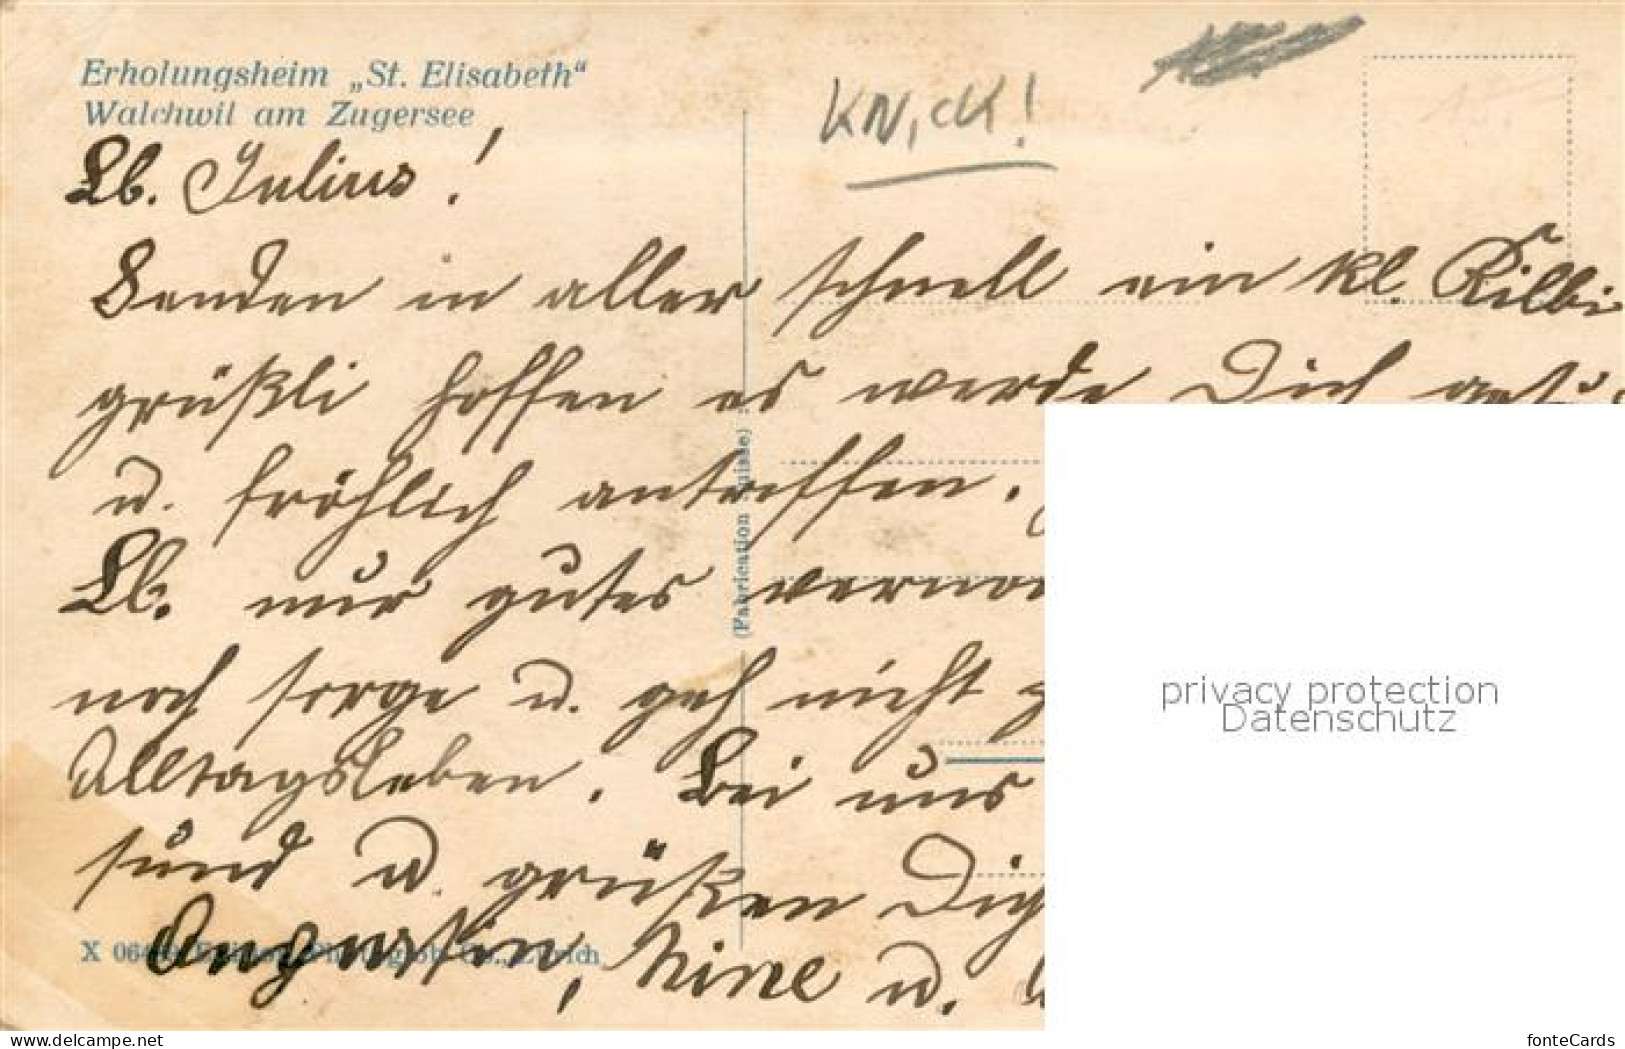 Erholungsheim „St. Elisabeth“
Walchwil am Zugersee
KNiCK!
Lb. Julius!
Senden in aller schnell ein kl. Kilbi
grüßli hoffen es werde Dich
u. fröhlich antreffen.
Lb. nur gutes
noch sorge u. geh nicht
Alltagsleben. Bei uns
sund u. grüßen Dich
Augustin, Nine u.
(Fabrication Suisse)
X Zürich
privacy protection
Datenschutz
delcampe.net
fonteCards